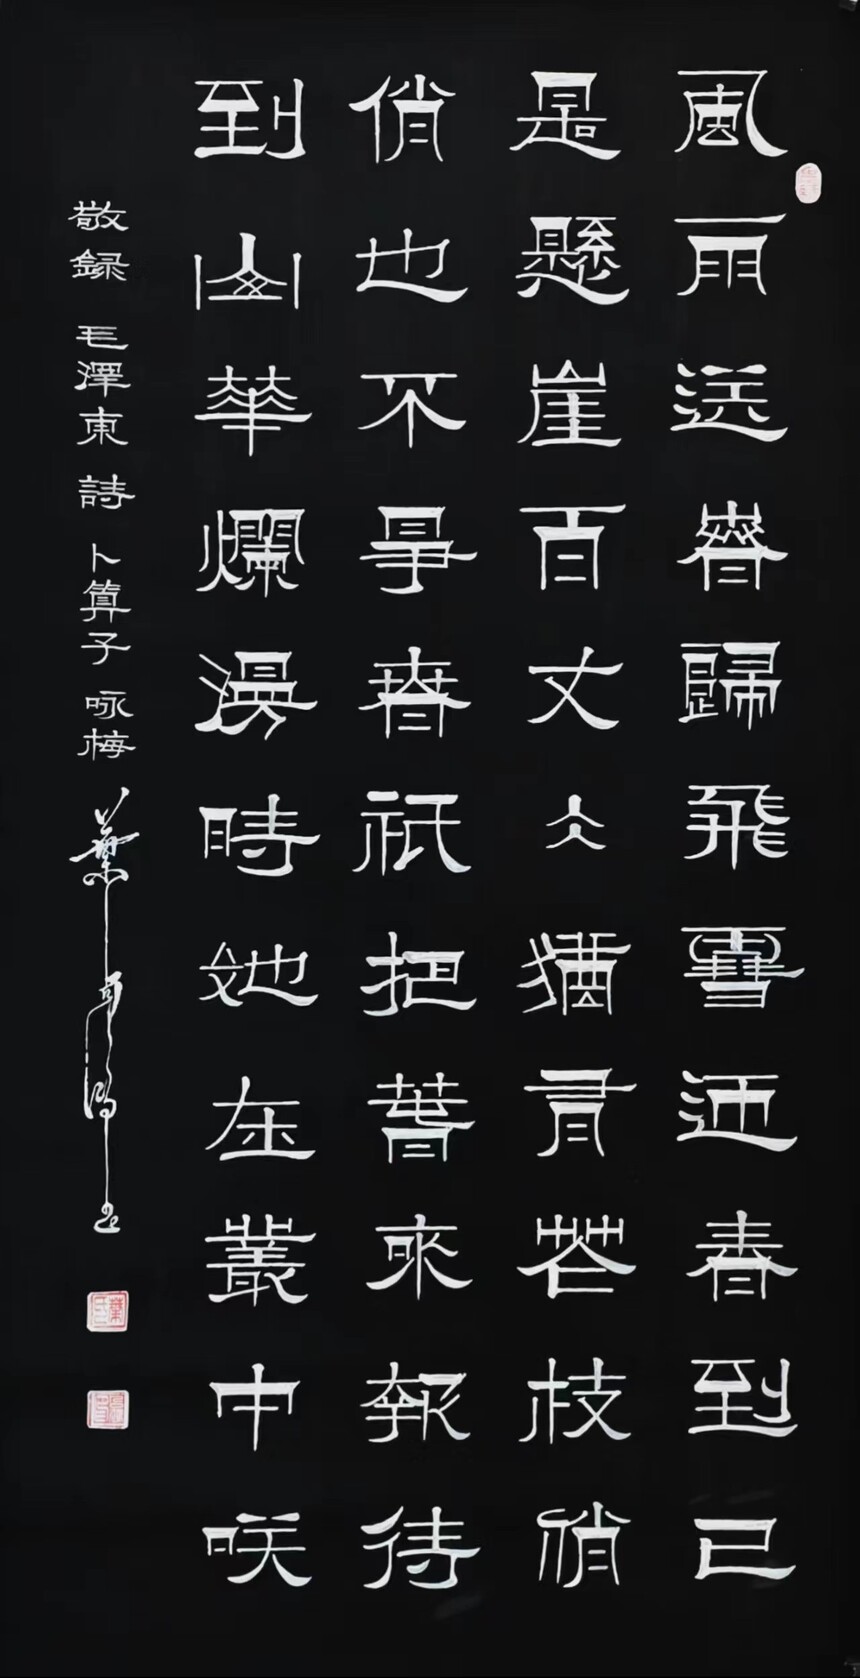 風雨送春歸飛雪迎春到已
是懸崖百丈仌猶有花枝俏
俏也不爭春祇把春來報待
到山華爛漫時她在叢中咲
敬録 毛澤東 詩 卜算子 咏梅 葉